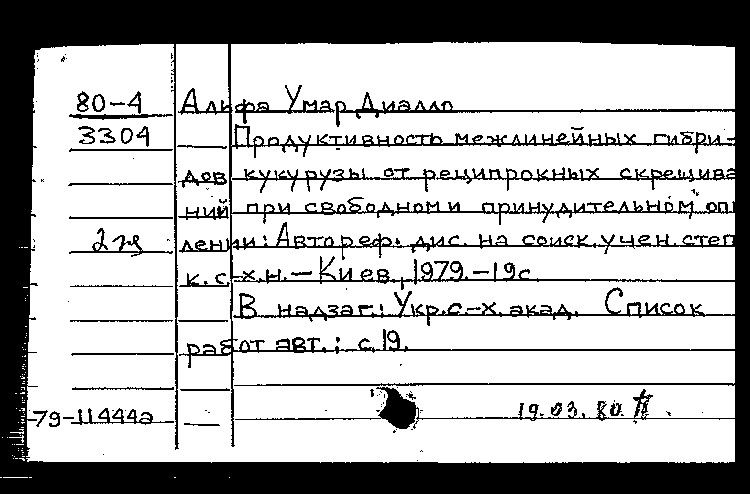 80-4 Альфа Умар Диалло
3304 Продуктивность межлинейных гибри-
дов кукурузы от реципрокных скрещива
ний при свободном и принудительном опы
лении: Автореф. дис. на соиск. учен. степ
к.с.-х.н. – Киев, 1979. – 19с
В надзаг.: Укр.с-х. акад. Список
работ авт.: с.19.
79-11444а — 19.03.80.